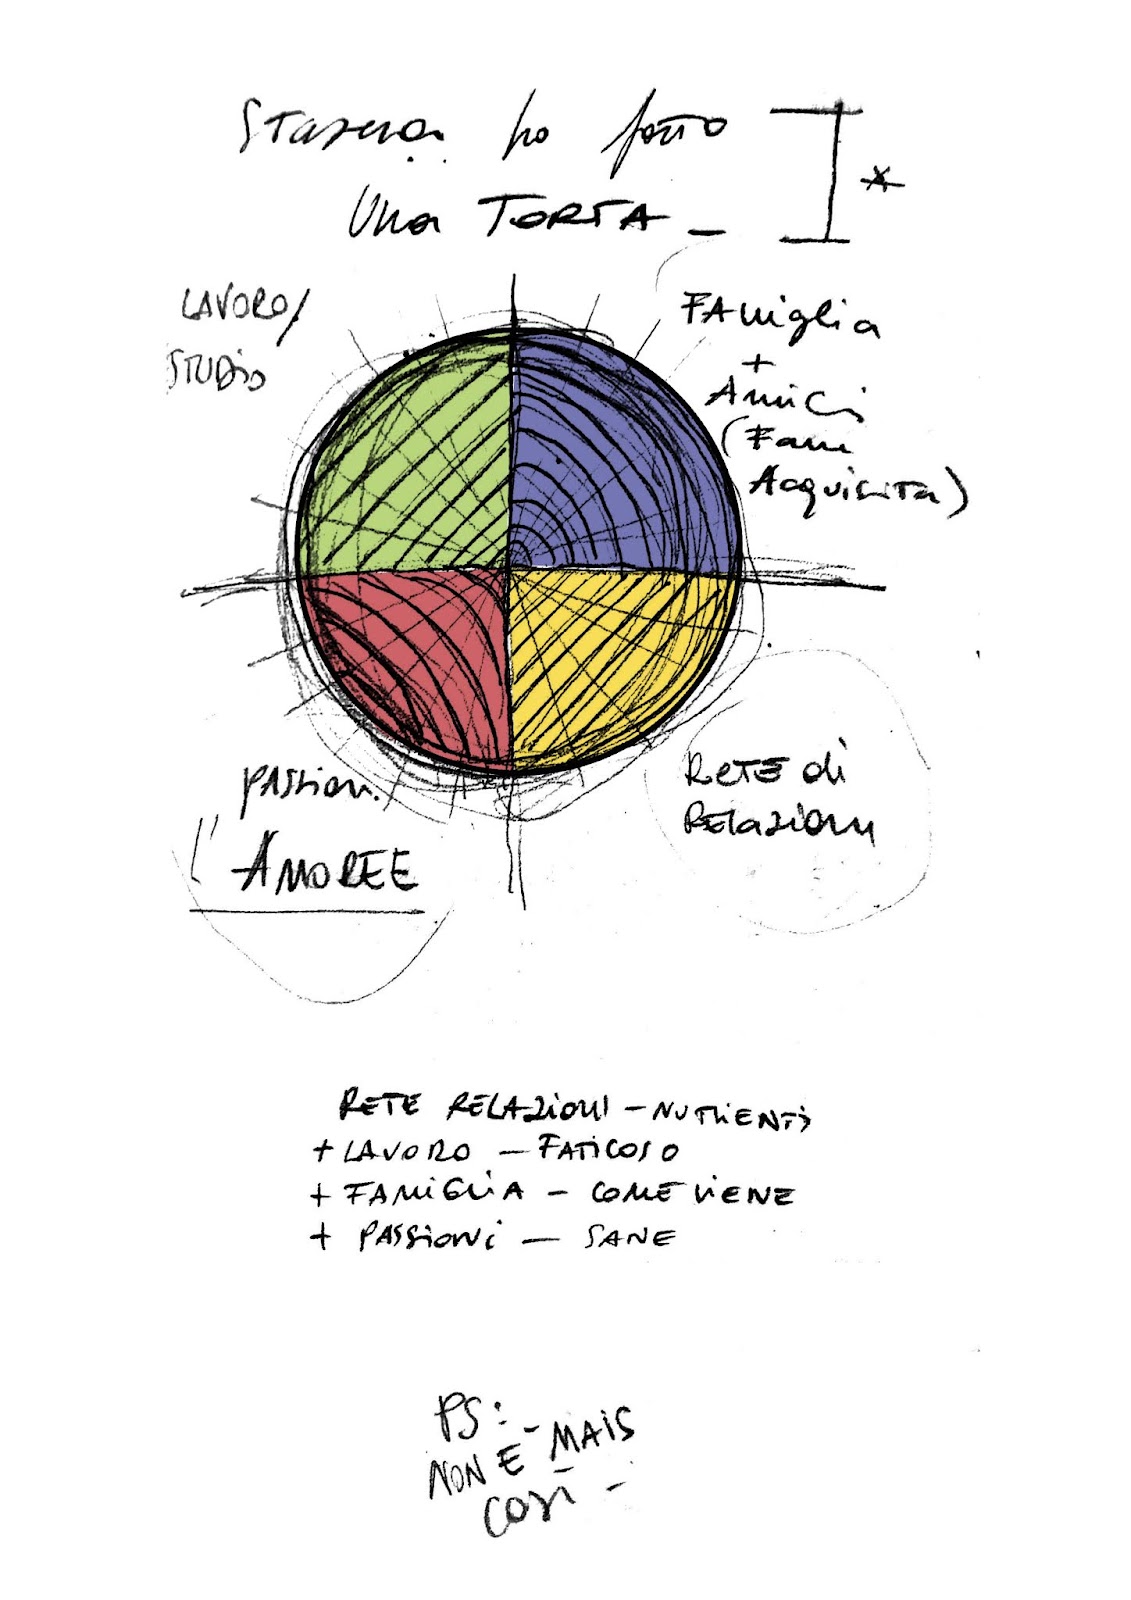 Stasera ho fatto
Una TORTA _
*
LAVORO/
STUDIO
FAmiglia
+
Amici
(Fam
Acquisita)
passioni
l'AMOREE
RETE di
RELazioni
RETE RELAZIONI - NUTRIENTI
+ LAVORO - FATICOSO
+ FAMIGLIA - COME VIENE
+ PASSIONI - SANE
PS:
NON È MAIS
COSÌ -